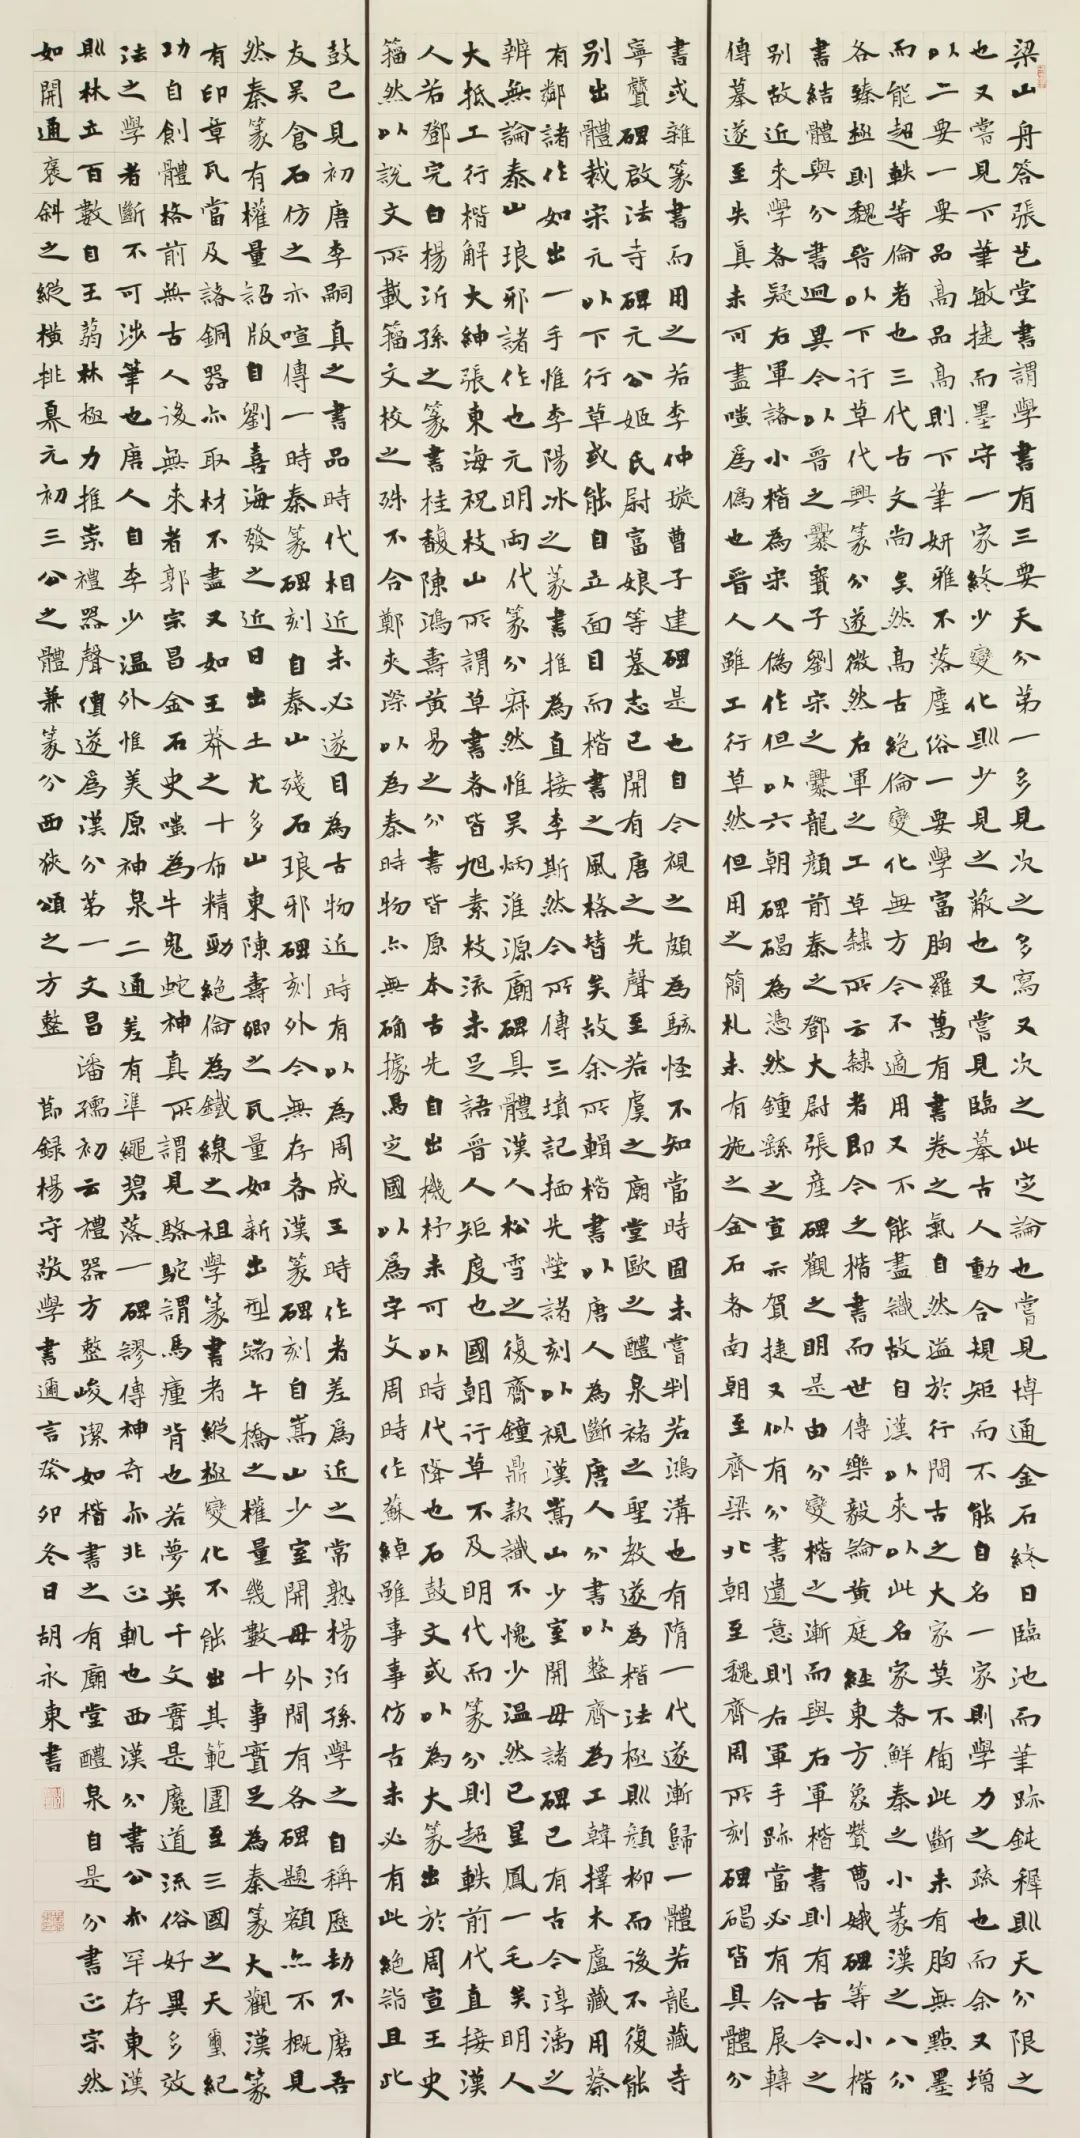 梁山舟答張芑堂書謂學書有三要天分第一多見次之多寫又次之此定論也嘗見博通金石終日臨池而筆跡鈍穉則天分限之
也又嘗見下筆敏捷而墨守一家終少變化則少見之蔽也又嘗見臨摹古人動合規矩而不能自名一家則學力之疏也而余又增
以二要一要品高品高則下筆妍雅不落塵俗一要學富胸羅萬有書卷之氣自然溢於行間古之大家莫不備此斷未有胸無點墨
而能超軼等倫者也三代古文尚矣然高古絕倫變化無方今不適用又不能盡識故自漢以來以此名家者鮮秦之小篆漢之八分
各臻極則魏晉以下行草代興篆分遂微然右軍之工草隸所云隸者即今之楷書而世傳樂毅論黃庭經東方象贊曹娥碑等小楷
書結體與分書迥異今以晉之爨寶子劉宋之爨龍顏前秦之鄧大尉張產碑觀之明是由分變楷之漸而與右軍楷書則有古今之
別故近來學者疑右軍諸小楷為宋人偽作但以六朝碑碣為憑然鍾繇之宣示賀捷又似有分書遺意則右軍手跡當必有合展轉
傳摹遂至失真未可盡嗤為偽也晉人雖工行草然但用之簡札未有施之金石者南朝至齊梁北朝至魏齊周所刻碑碣皆具體分
書或雜篆書而用之若李仲璇曹子建碑是也自今視之頗為駭怪不知當時固未嘗判若鴻溝也有隋一代遂漸歸一體若龍藏寺
寧贙碑啟法寺碑元公姬氏尉富娘等墓志已開有唐之先聲至若虞之廟堂歐之醴泉褚之聖教遂為楷法極則顏柳而後不復能
別出體裁宋元以下行草或能自立面目而楷書之風格替矣故余所輯楷書以唐人為斷唐人分書以整齊為工韓擇木盧藏用蔡
有鄰諸作如出一手惟李陽冰之篆書推為直接李斯然今所傳三墳記栖先塋諸刻以視漢嵩山少室開母諸碑已有古今淳漓之
辨無論泰山琅邪諸作也元明兩代篆分寂然惟吳炳淮源廟碑具體漢人松雪之復齊鐘鼎款識不愧少溫然已星鳳一毛矣明人
大抵工行楷解大紳張東海祝枝山所謂草書者皆旭素枝流未足語晉人矩度也國朝行草不及明代而篆分則超軼前代直接漢
人若鄧完白楊沂孫之篆書桂馥陳鴻壽黃易之分書皆原本古先自出機杼未可以時代降也石鼓文或以為大篆出於周宣王史
籀然以說文所載籀文校之殊不合鄭夾漈以為秦時物亦無确據馬定國以為宇文周時作蘇綽雖事事仿古未必有此絕詣且此
鼓已見初唐李嗣真之書品時代相近未必遂目為古物近時有以為周成王時作者差為近之常熟楊沂孫學之自稱歷劫不磨吾
友吳倉石仿之亦喧傳一時秦篆碑刻自泰山殘石琅邪碑刻外今無存者漢篆碑刻自嵩山少室開母外間有各碑題額亦不概見
然秦篆有權量詔版自劉喜海發之近日出土尤多山東陳壽卿之瓦量如新出型端午橋之權量幾數十事實足為秦篆大觀漢篆
有印章瓦當及諸銅器亦取材不盡又如王莽之十布精勁絕倫為鐵線之祖學篆書者縱極變化不能出其範圍至三國之天璽紀
功自創體格前無古人後無來者郭宗昌金石史嗤為牛鬼蛇神真所謂見駱駝謂馬腫背也若夢英千文實是魔道流俗好異多效
法之學者斷不可涉筆也唐人自李少溫外惟美原神泉二通差有準繩碧落一碑謬傳神奇亦非正軌也西漢分書公亦罕存東漢
則林立百數自王蒻林極力推崇禮器聲價遂為漢分第一文昌潘孺初云禮器方整峻潔如楷書之有廟堂醴泉自是分書正宗然
如開通褒斜之縱橫排奡元初三公之體兼篆分西狹頌之方整 節録楊守敬學書邇言癸卯冬日胡永東書